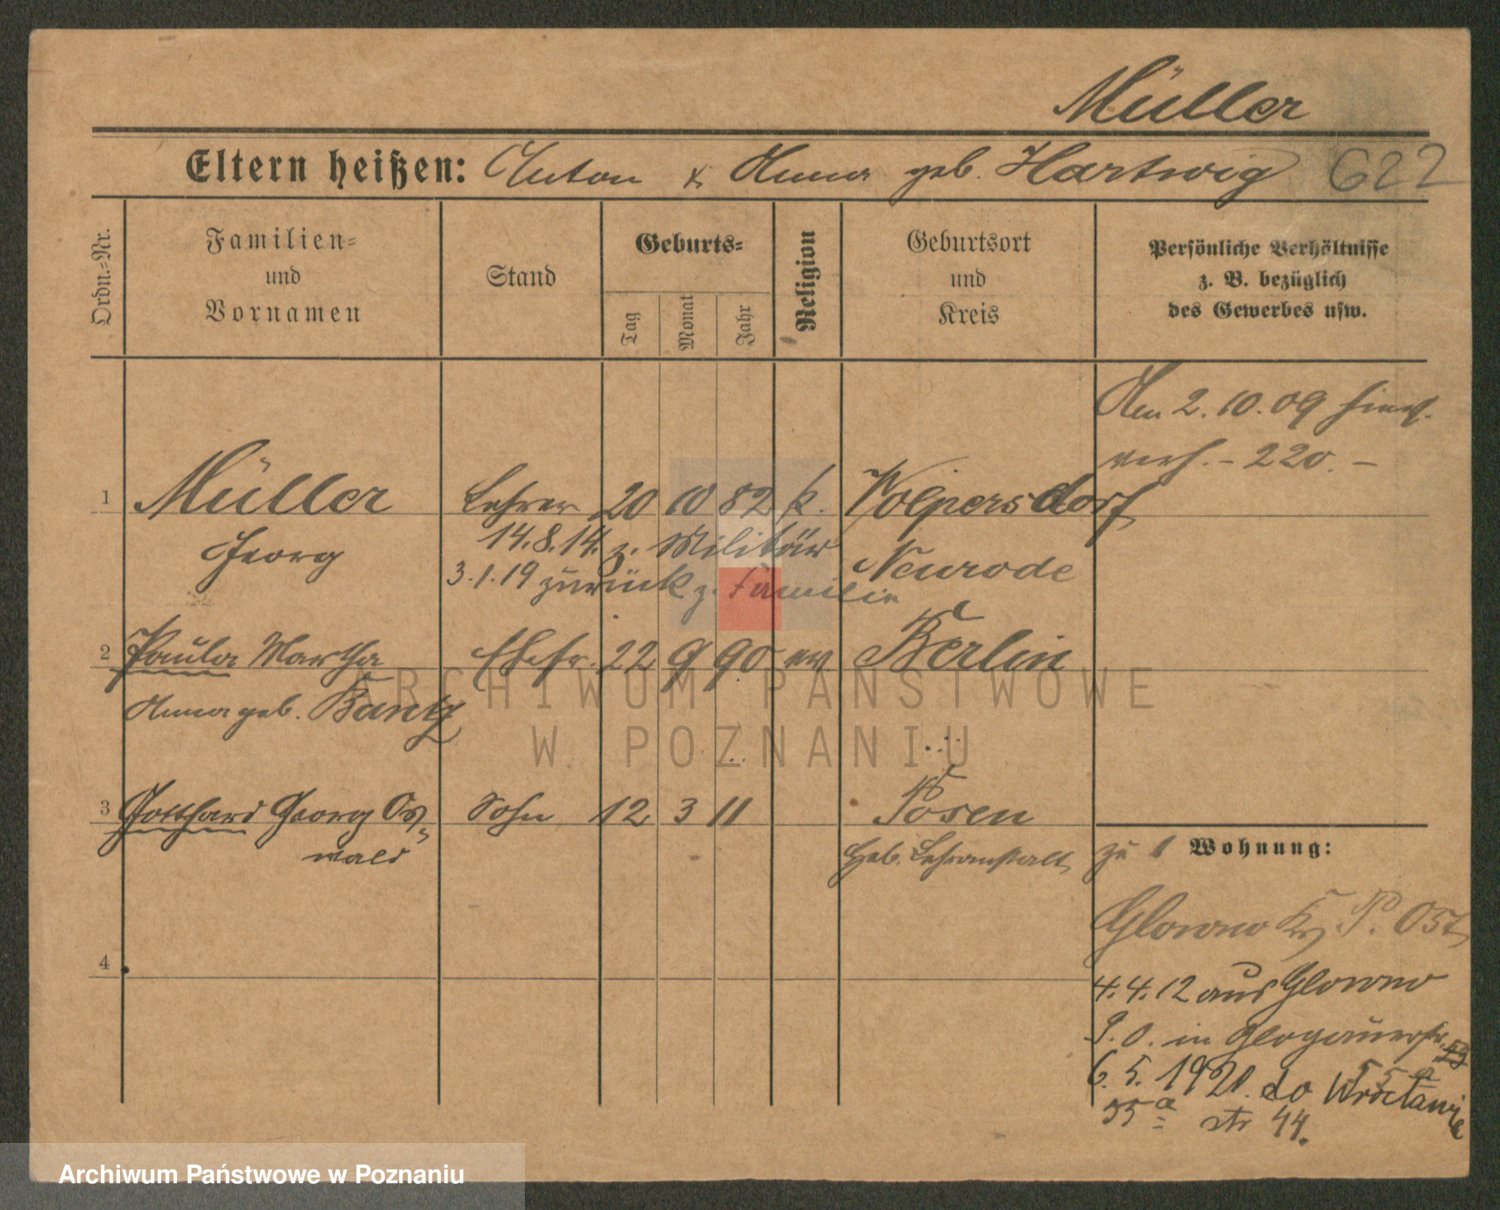 Müller
Eltern heißen: Anton & Anna geb. Hartwig 622
Ordn.-Nr.
Familien-
und
Vornamen
Stand
Geburts-
Tag
Monat
Jahr
Religion
Geburtsort
und
Kreis
Persönliche Verhältnisse
z. B. bezüglich
des Gewerbes usw.
Am 2. 10. 09
verh. - 220. -
1 Müller Lehrer 20 10 82 k. Volpersdorf
Georg 14.8.14. z. Militär Neurode
3.1.19 zurück z. Familie
2 Paula Martha Ehefr. 22 9 90 ev Berlin
Anna geb. Bantz
3 Gotthard Georg Os- Sohn 12 3 11 Posen
wald Heb. Lehranstalt
zu 1 Wohnung:
Glowno Kr. P. Ost
4
4.4.12 aus Glowno
P.O. in Glogauerstr.
55 a
6.5.1921. do Wrocławia
55 a str 44.
ARCHIWUM PAŃSTWOWE
W POZNANIU
Archiwum Państwowe w Poznaniu